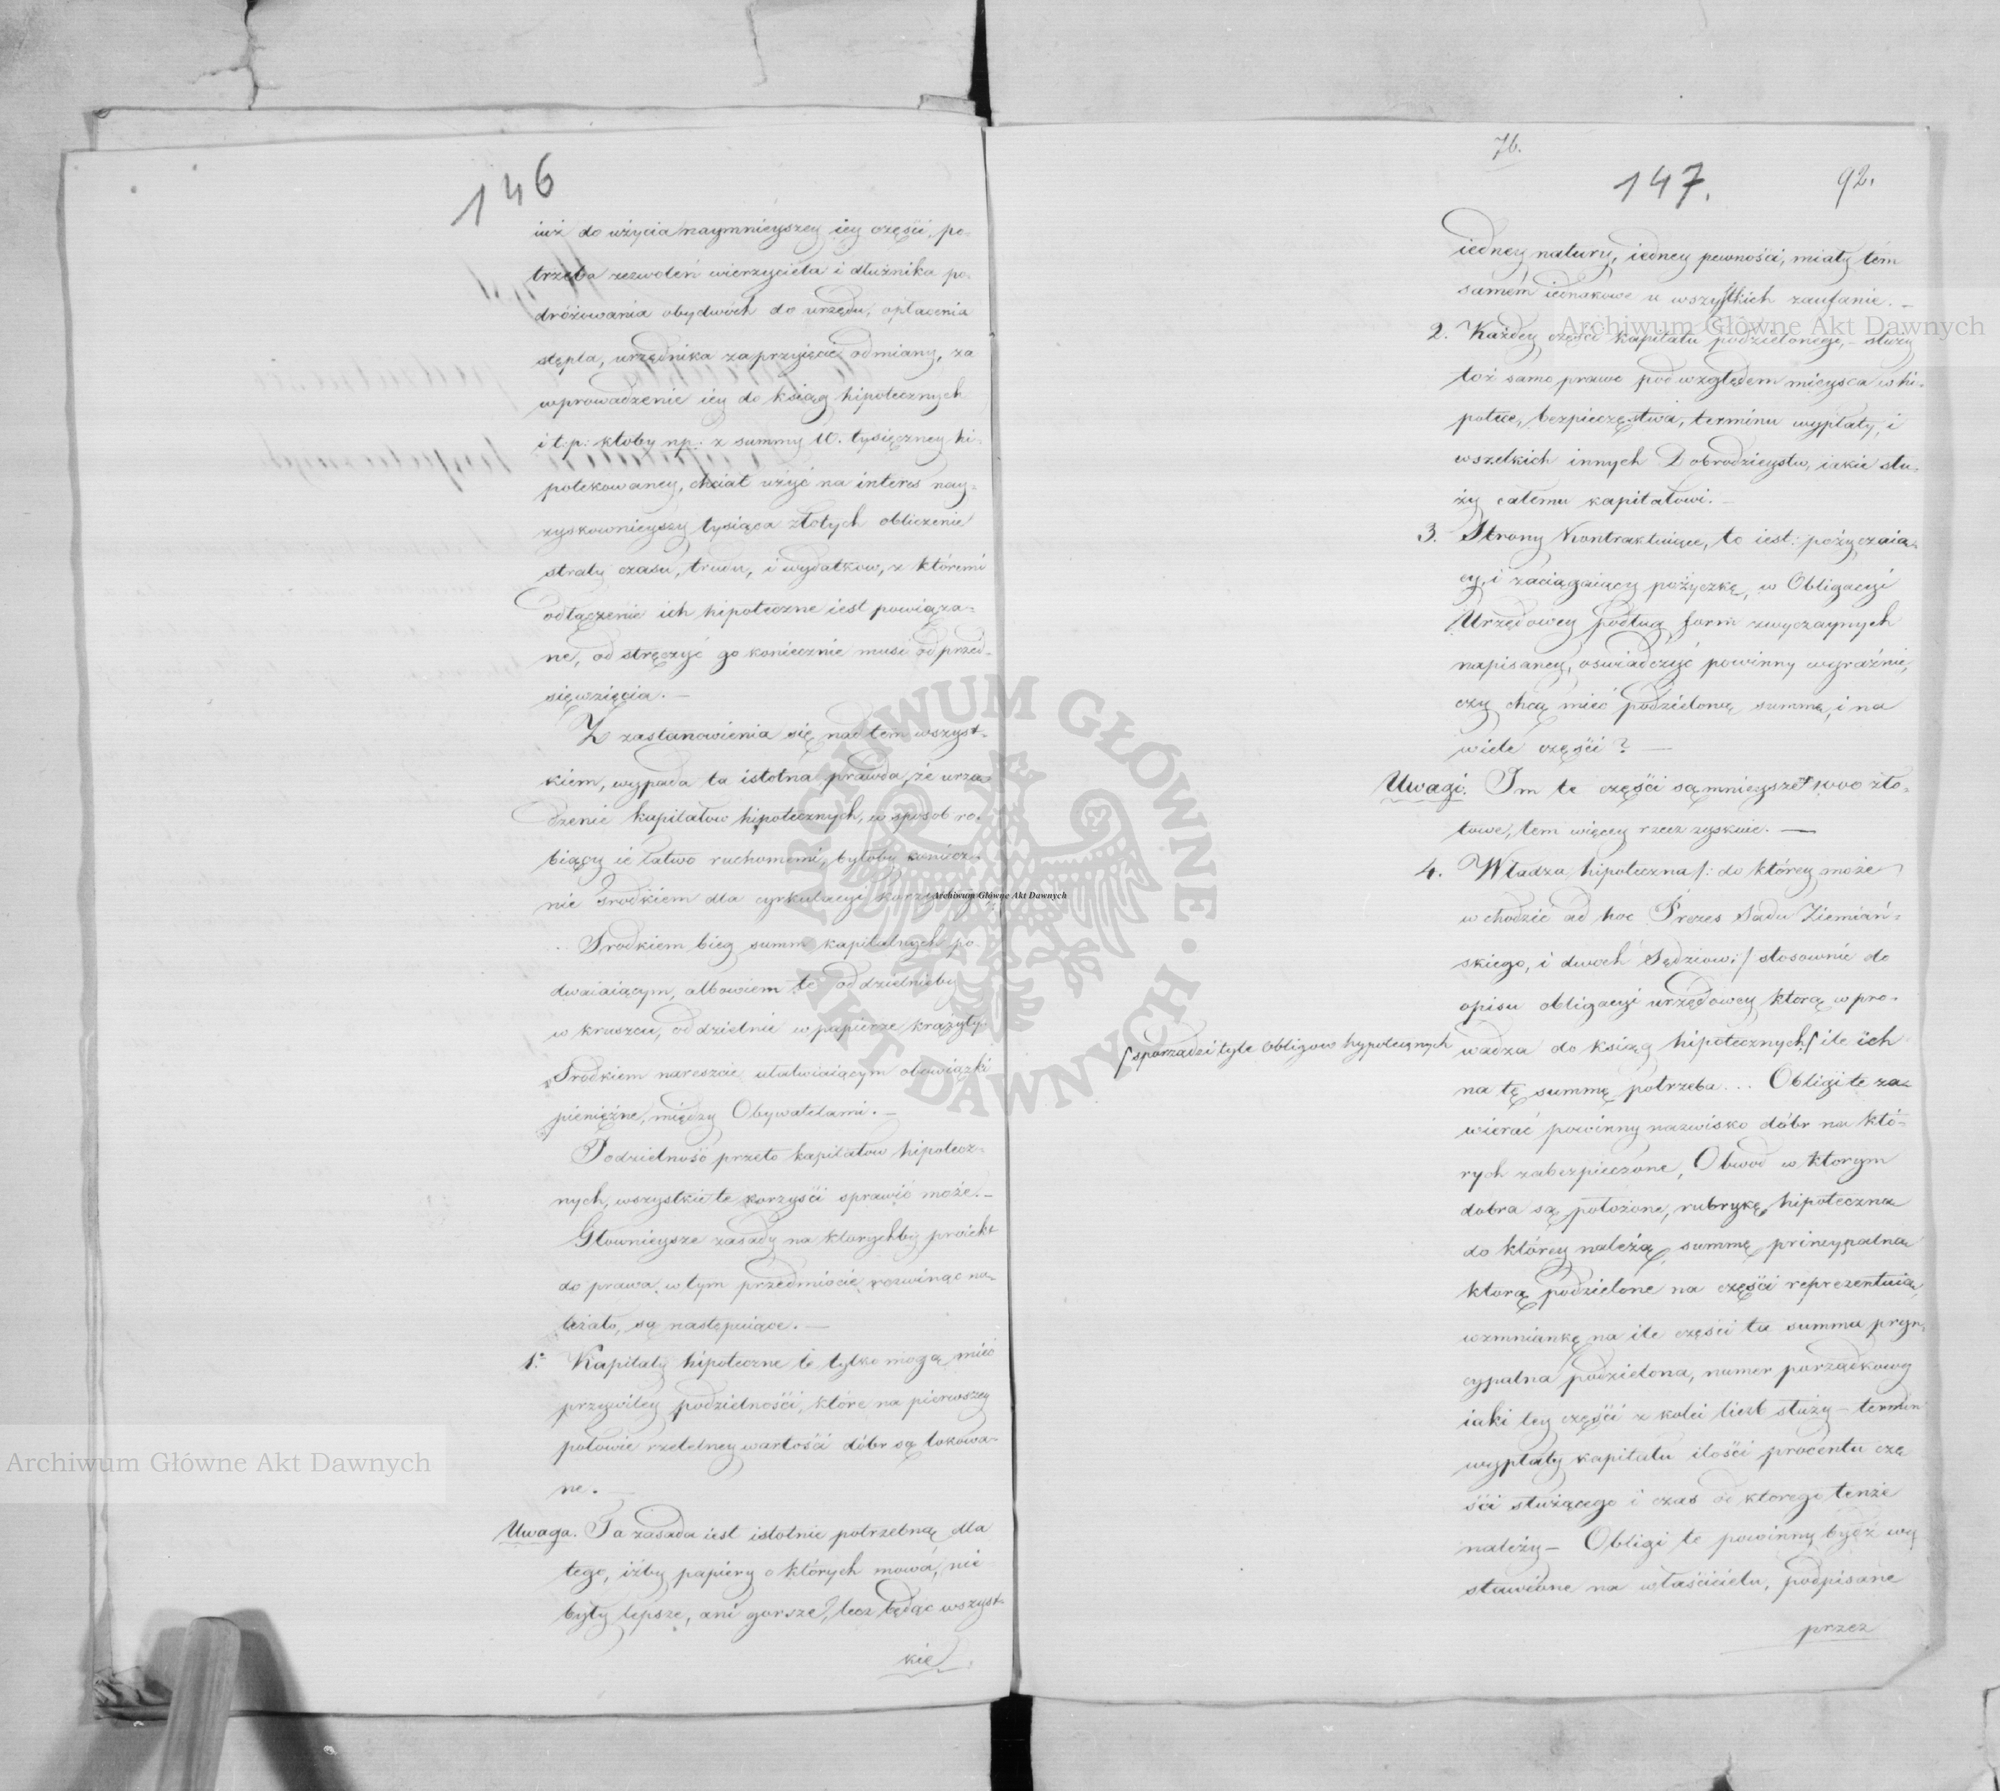 146
iuż do użycia naymnieyszey iey części, po-
trzeba zezwoleń wierzyciela i dłużnika po-
dróżowania obydwóch do urzędu, opłacenia
stępla, urzędnika za przyięcie odmiany, za
wprowadzenie iey do ksiąg hipotecznych
i t: p: ktoby np: z summy 10. tysięczney hi-
potekowaney, chciał użyć na interes nay-
zyskownieyszy tysiąca złotych obliczenie
straty czasu, trudu, i wydatkow, z któremi
odłączenie ich hipoteczne iest powiąza-
ne, odstręczyć go koniecznie musi od przed-
sięwzięcia. —
Z zastanowienia się nad tem wszyst-
kiem, wypada ta istotna prawda, że urzą-
dzenie kapitałow hipotecznych, w sposób ro-
biący ie łatwo ruchomemi, byłoby koniecz-
nie Srodkiem dla cyrkulacyi
Srodkiem bieg summ kapitalnych po
dwaiaiącym, albowiem te oddzielnieby
w kruszcu, oddzielnie w papierze krążyły
Srodkiem nareszcie ułatwiaiącym obowiązki
pieniężne, między Obywatelami. —
Podzielność przeto kapitałow hipotecz-
nych, wszystkie te korzyści sprawić może. —
Głownieysze zasady na ktorychby proiekt
do prawa w tym przedmiocie rozwinąć na-
leżało, są następuiące. —
1. Kapitały hipoteczne te tylko mogą mieć
przywiley podzielności, które na pierwszey
połowie rzetelney wartości dóbr są lokowa-
ne. —
Uwaga. Ta zasada iest istotnie potrzebną dla
tego, iżby papiery o których mowa, nie
były lepsze, ani gorsze, lecz będąc wszyst-
kie
76.
147.
92.
iedney natury, iedney pewności, miały tém
samém iednakowe u wszystkich zaufanie. —
2. Każdey części kapitału podzielonego, — służy
toż samo prawo pod względem mieysca w hi-
potece, bezpieczeństwa, terminu wypłaty, i
wszelkich innych Dobrodzieystw, iakie słu-
ży całemu kapitałowi. —
3. Strony Kontraktuiące, to iest: pożyczaią-
cy, i zaciągaiący pożyczkę, w Obligacyi
Urzędowey podług form zwyczaynych
napisaney, oswiadczyć powinny wyraźnie,
czy chcą mieć podzieloną summę, i na
wiele części? —
Uwagi. Im te części są mnieysze 1000 zło-
towe, tem więcey rzecz zyskuie. —
4. Władza hipoteczna /: do którey może
wchodzić ad hoc Prezes Sadu Ziemiań-
skiego, i dwoch Sędziow :/ stosownie do
opisu obligacyi urzędowey ktorą wpro-
wadza do ksiąg hipotecznych, ile ich
sporządzi tyle Obligow hypotecznych
na tę summę potrzeba... Obligi te za-
wierać powinny nazwisko dóbr na któ-
rych zabezpieczone, Obwod w ktorym
dobra są położone, rubrykę hipoteczną
do którey należą, summę pryncypalną
ktorą podzielone na części reprezentuią,
wzmniankę na ile części ta summa pryn-
cypalna podzielona, numer porządkowy
iaki tey części z kolei liczb służy — termin
wypłaty kapitału ilości procentu czę
ści służącego i czas od ktorego tenże
należy — Obligi te powinny bydź wy
stawione na właściciela, podpisane
przez
Archiwum Główne Akt Dawnych
Archiwum Główne Akt Dawnych
Archiwum Główne Akt Dawnych
ARCHIWUM GŁÓWNE · AKT DAWNYCH ·